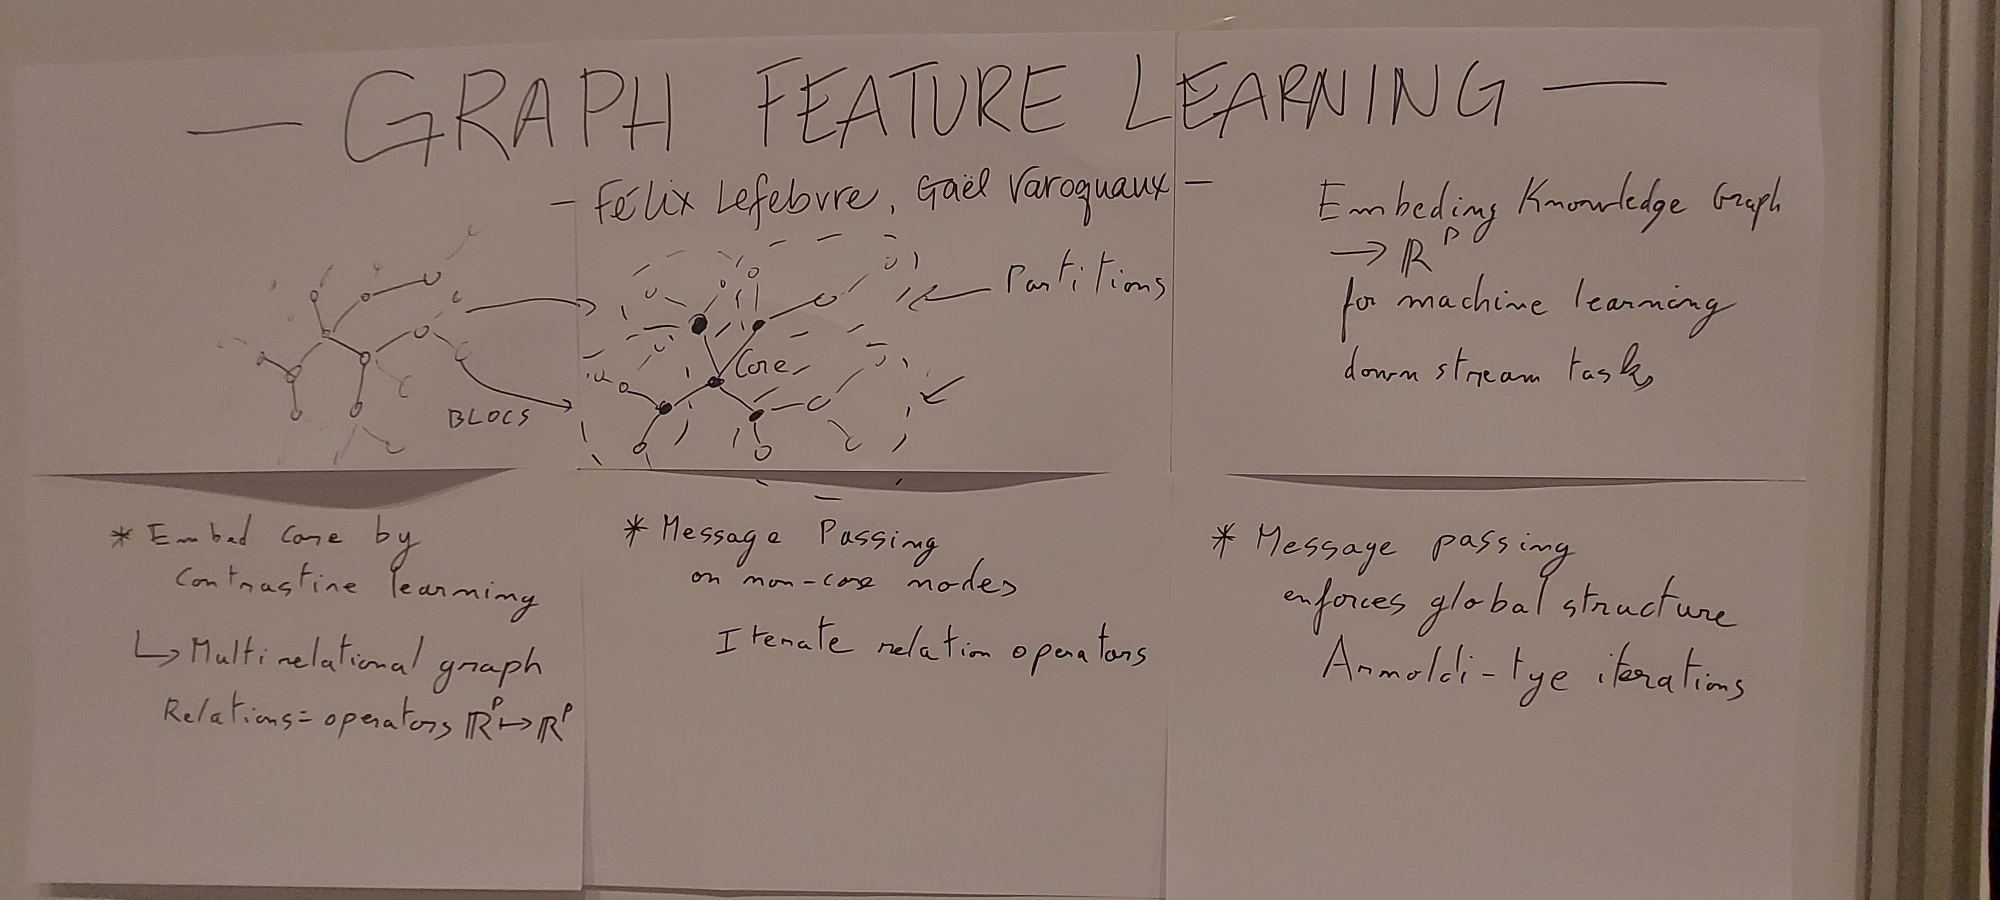 — GRAPH FEATURE LEARNING —
- Félix Lefebvre, Gaël Varoquaux -
BLOCS
Core
Partitions
Embeding Knowledge Graph
→ ℝᵖ
for machine learning
down stream tasks
* Embed core by
contrastive learning
↳ Multi relational graph
Relations = operators ℝᵖ ↦ ℝᵖ
* Message Passing
on non-core nodes
Iterate relation operators
* Message passing
enforces global structure
Arnoldi-tye iterations